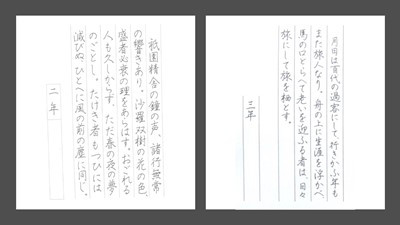 祇園精舎の鐘の声、諸行無常
の響きあり。沙羅双樹の花の色、
盛者必衰の理をあらはす。おごれる
人も久しからず、ただ春の夜の夢
のごとし。たけき者もつひには
滅びぬ、ひとへに風の前の塵に同じ。
二年
月日は百代の過客にして、行きかふ年も
また旅人なり。舟の上に生涯を浮かべ、
馬の口とらへて老いを迎ふる者は、日々
旅にして旅を栖とす。
三年